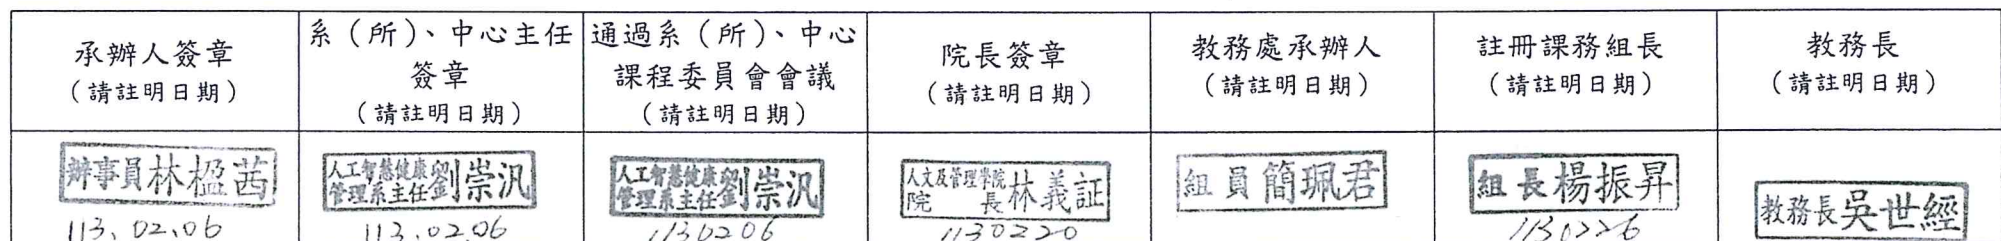 承辦人簽章
(請註明日期)
系(所)、中心主任
簽章
(請註明日期)
通過系(所)、中心
課程委員會會議
(請註明日期)
院長簽章
(請註明日期)
教務處承辦人
(請註明日期)
註冊課務組長
(請註明日期)
教務長
(請註明日期)
辦事員林楹茜
113.02.06
人工智慧健康
管理系主任劉崇汎
113.02.06
人工智慧健康
管理系主任劉崇汎
1130206
人文及管理學院
院長林義証
1130220
組員簡珮君
組長楊振昇
1130226
教務長吳世經